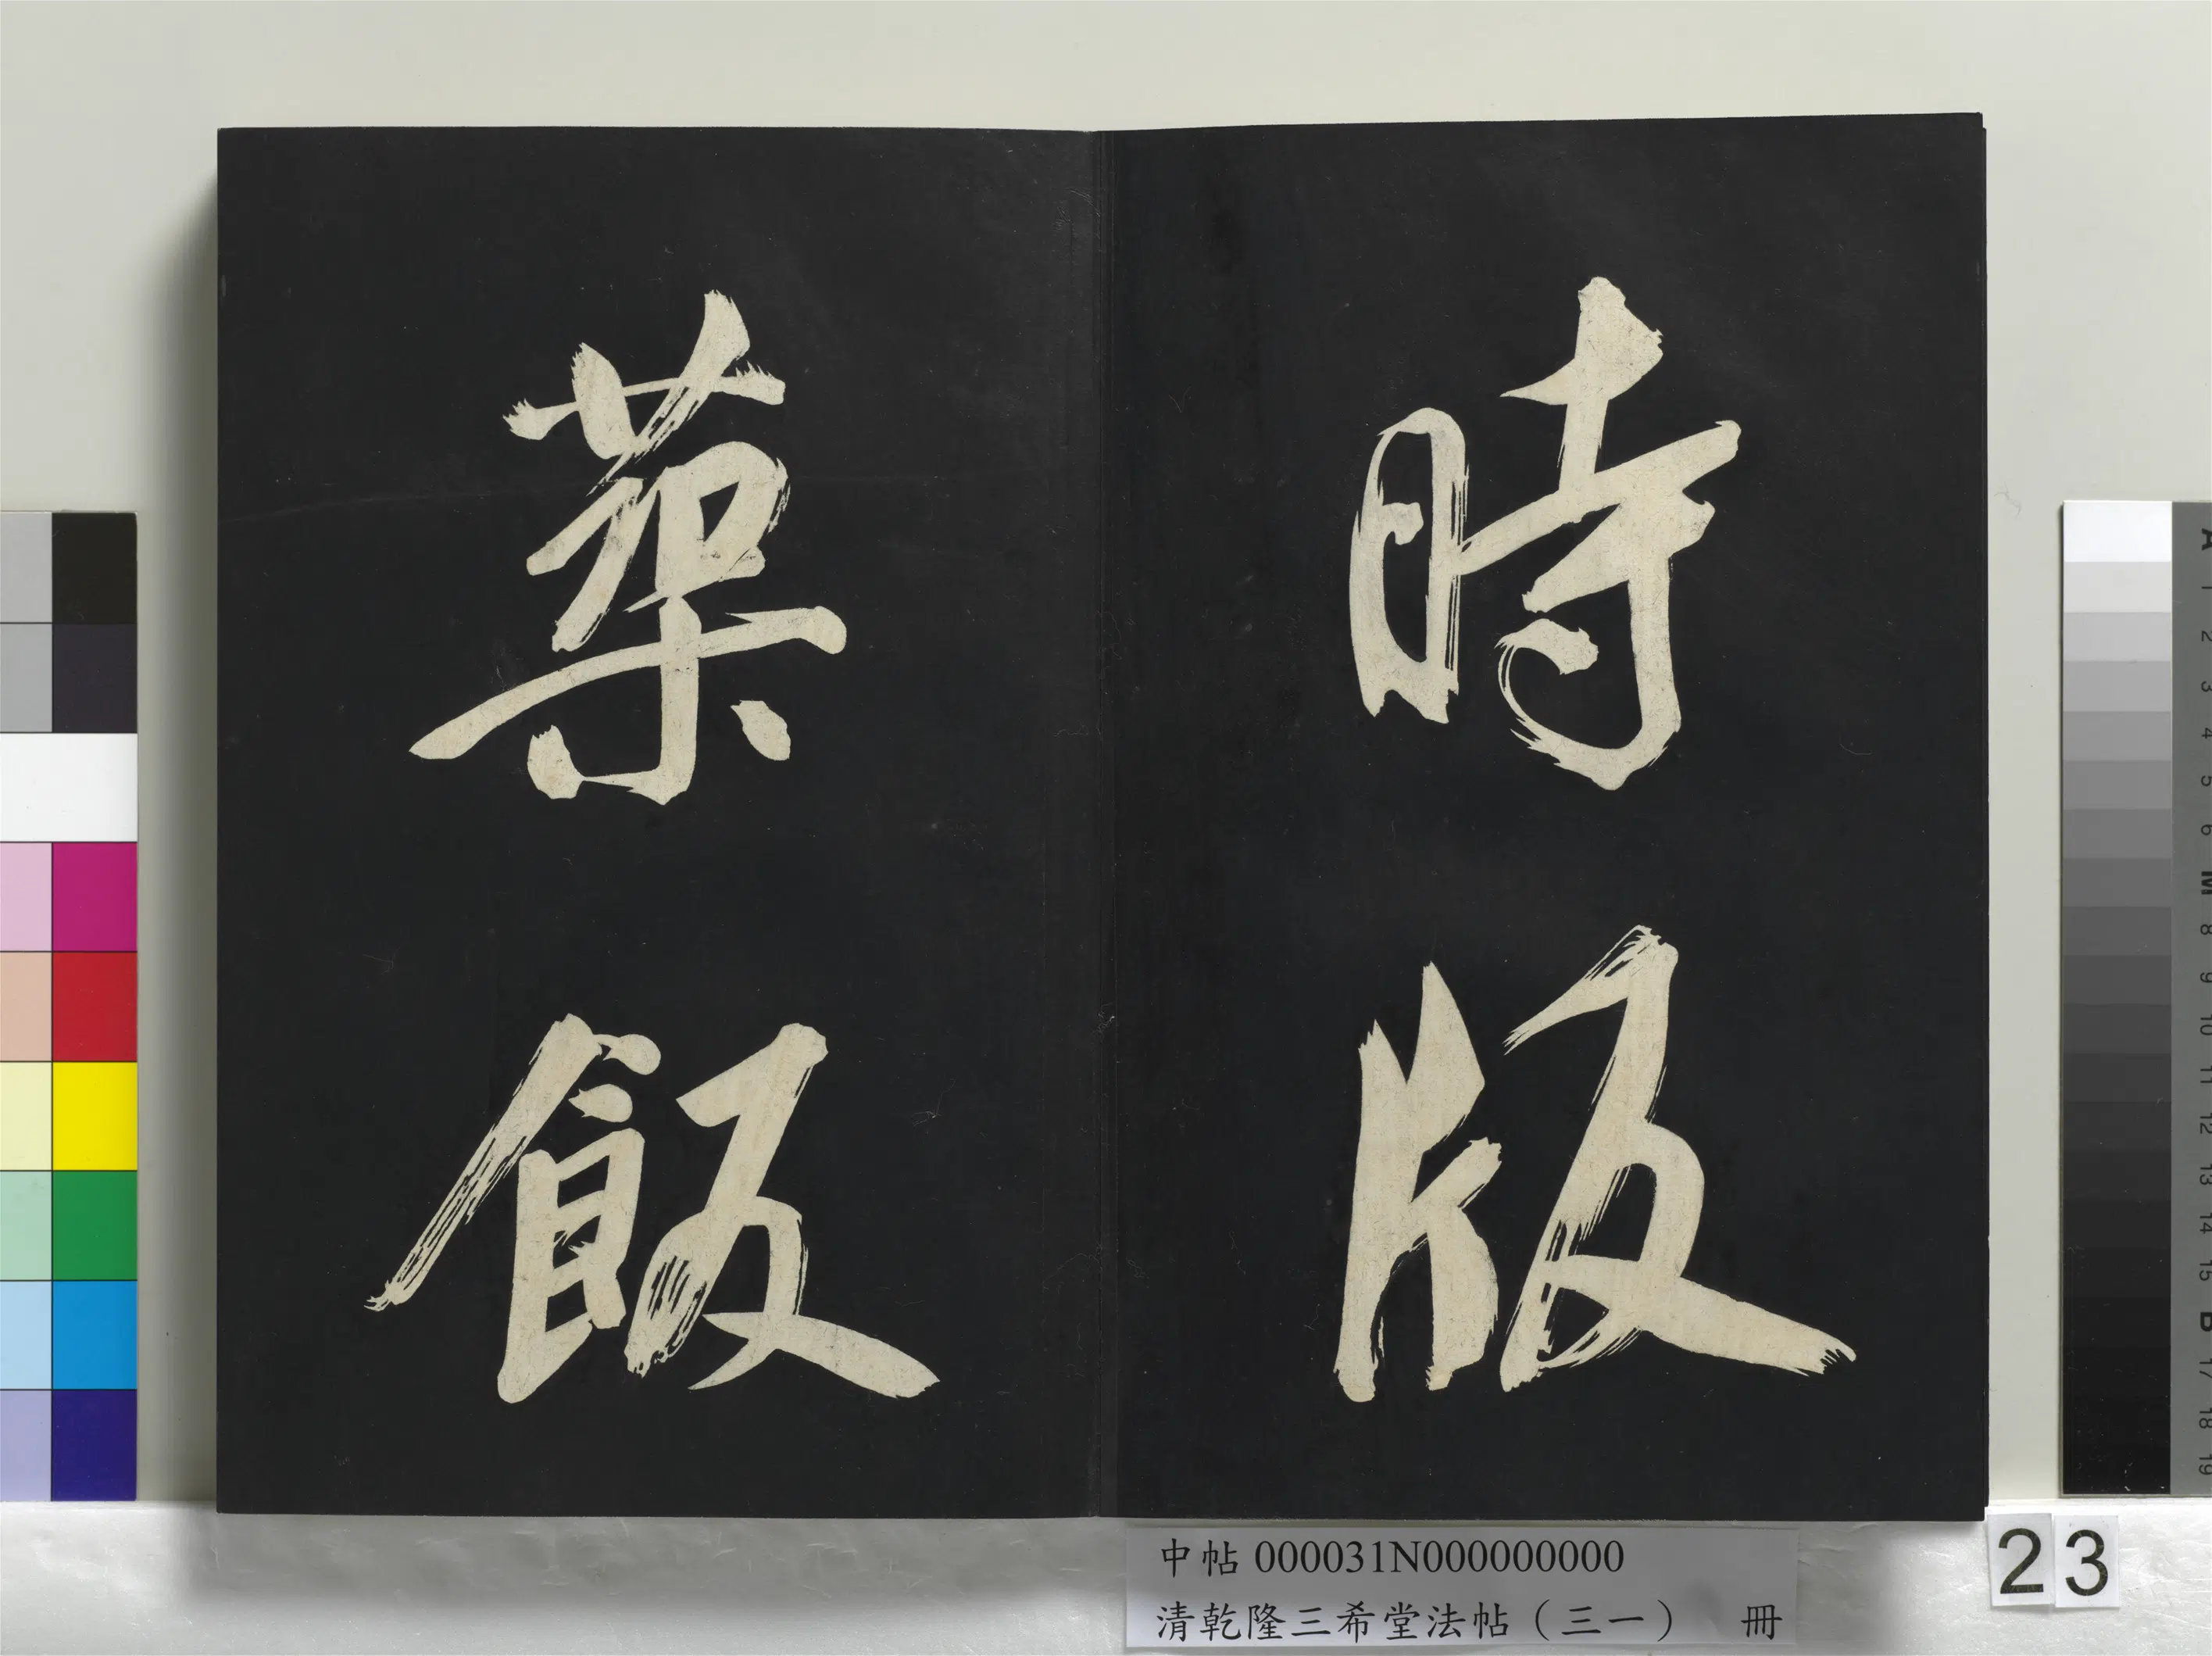 時版
築飯
中帖 000031N000000000
清乾隆三希堂法帖（三一） 冊
23
A 1 2 3 4 5 6 M 8 9 10 11 12 13 14 15 B 17 18 19